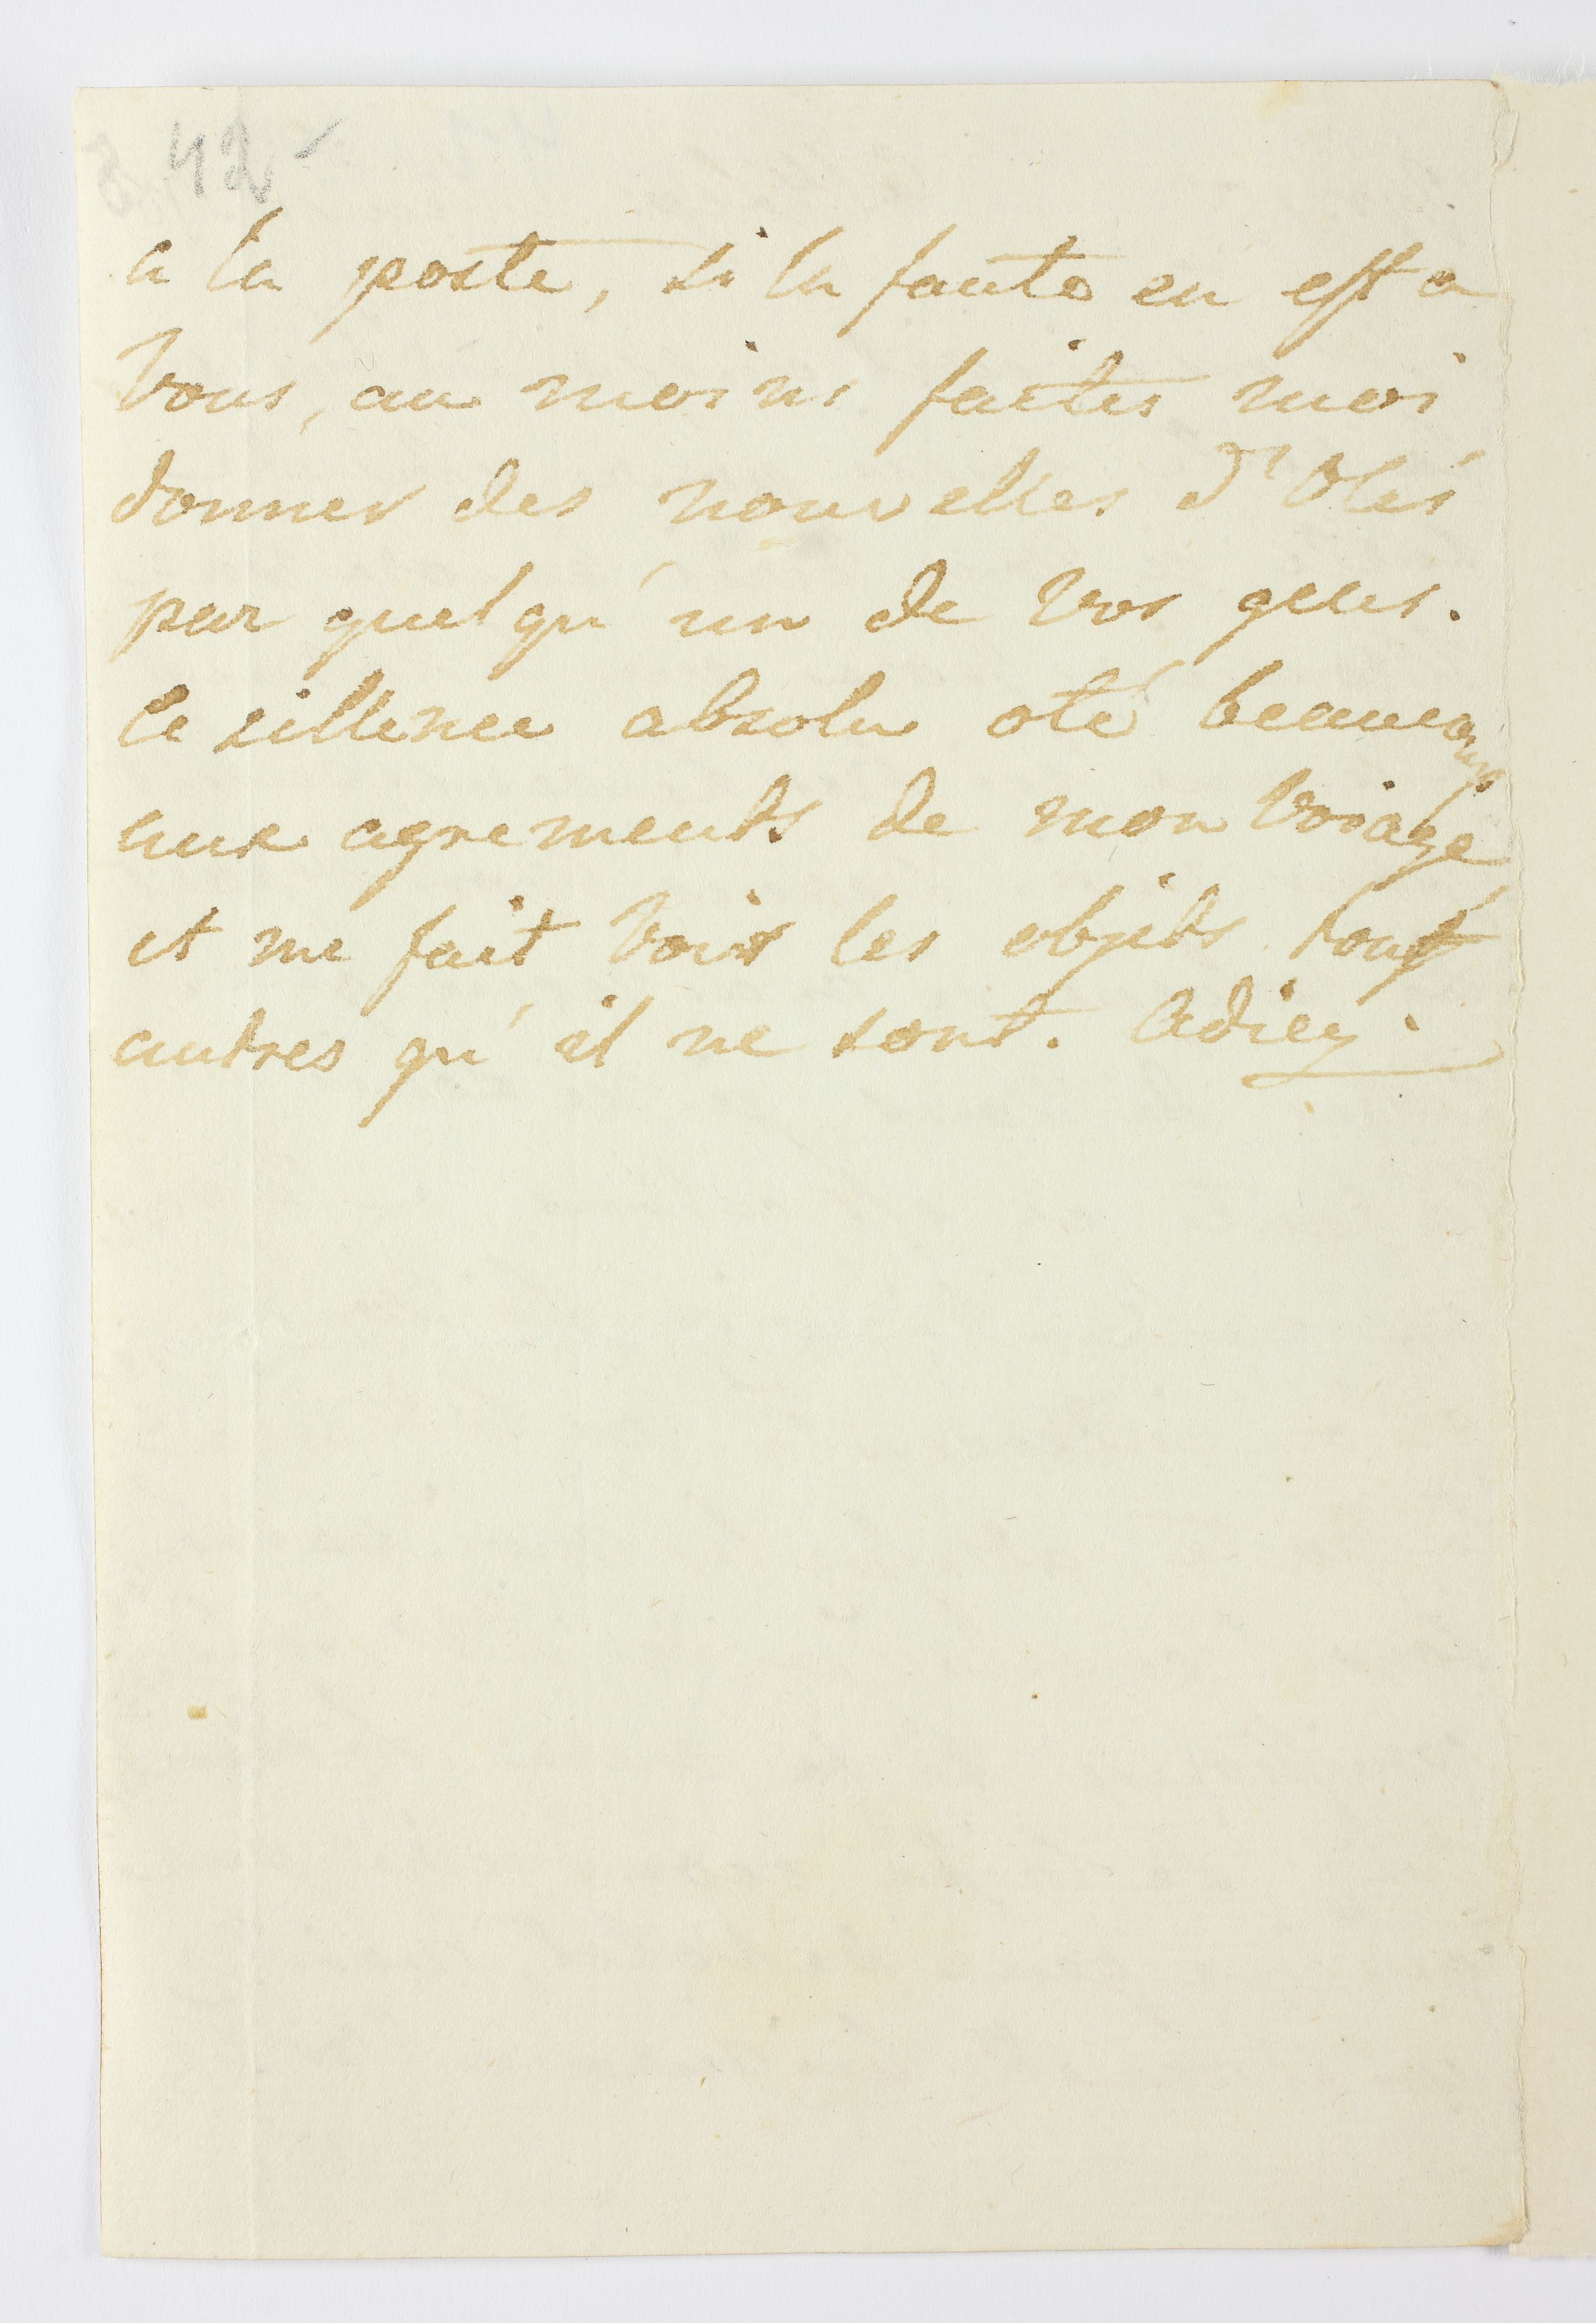 42
a la poste, si la faute en est a
vous, au moins faites moi
donner des nouvelles d'Olés
par quelqu'un de vos gens.
le sillence absolu oté beaucoup
aux agrements de mon voiage
et me fait voir les objets tout
autres qu'il ne sont. Adieu.